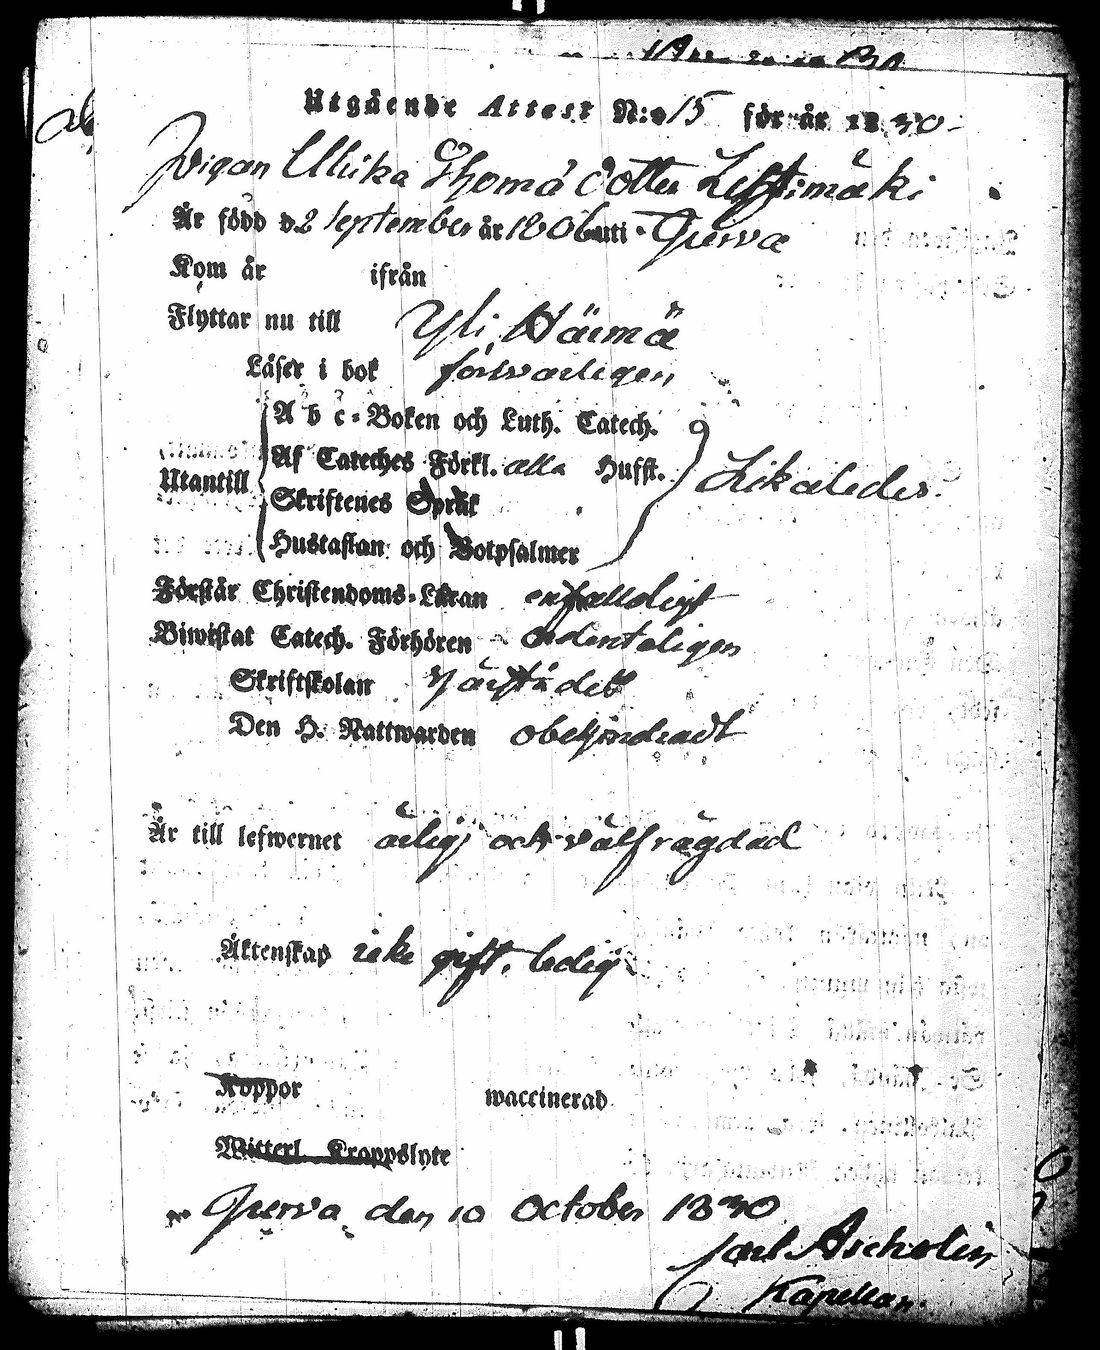 Utgående Attest N:o 15 för år 1830.
Pigan Ulrika Thomæ dotter Lehtimäki
Är född d. 2 September år 1806 uti Qverva
Kom år ifrån
Flyttar nu till Yli Härmä
Läser i bok försvarligen
A b c=Boken och Luth. Catech.
Utantill Af Cateches Förkl. alla Hufst. Likaledes.
Skriftenes Språk
Hustaflan och Botpsalmer
Förstår Christendoms=Läran enfalldigt
Biwistat Catech. Förhören ordenteligen
Skriftskolan
Den H. Nattwarden obehindradt
Är till lefwernet ärlig och välfrägdad
Äktenskap icke gift, ledig
Koppor waccinerad
Witterl. Kroppslyte
den 10 October 1830
Carl Aschelin
Kapellan.